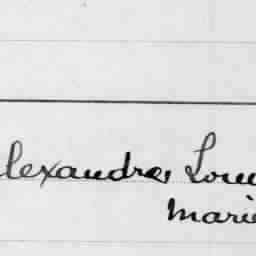 lexandre, Lou
Marie